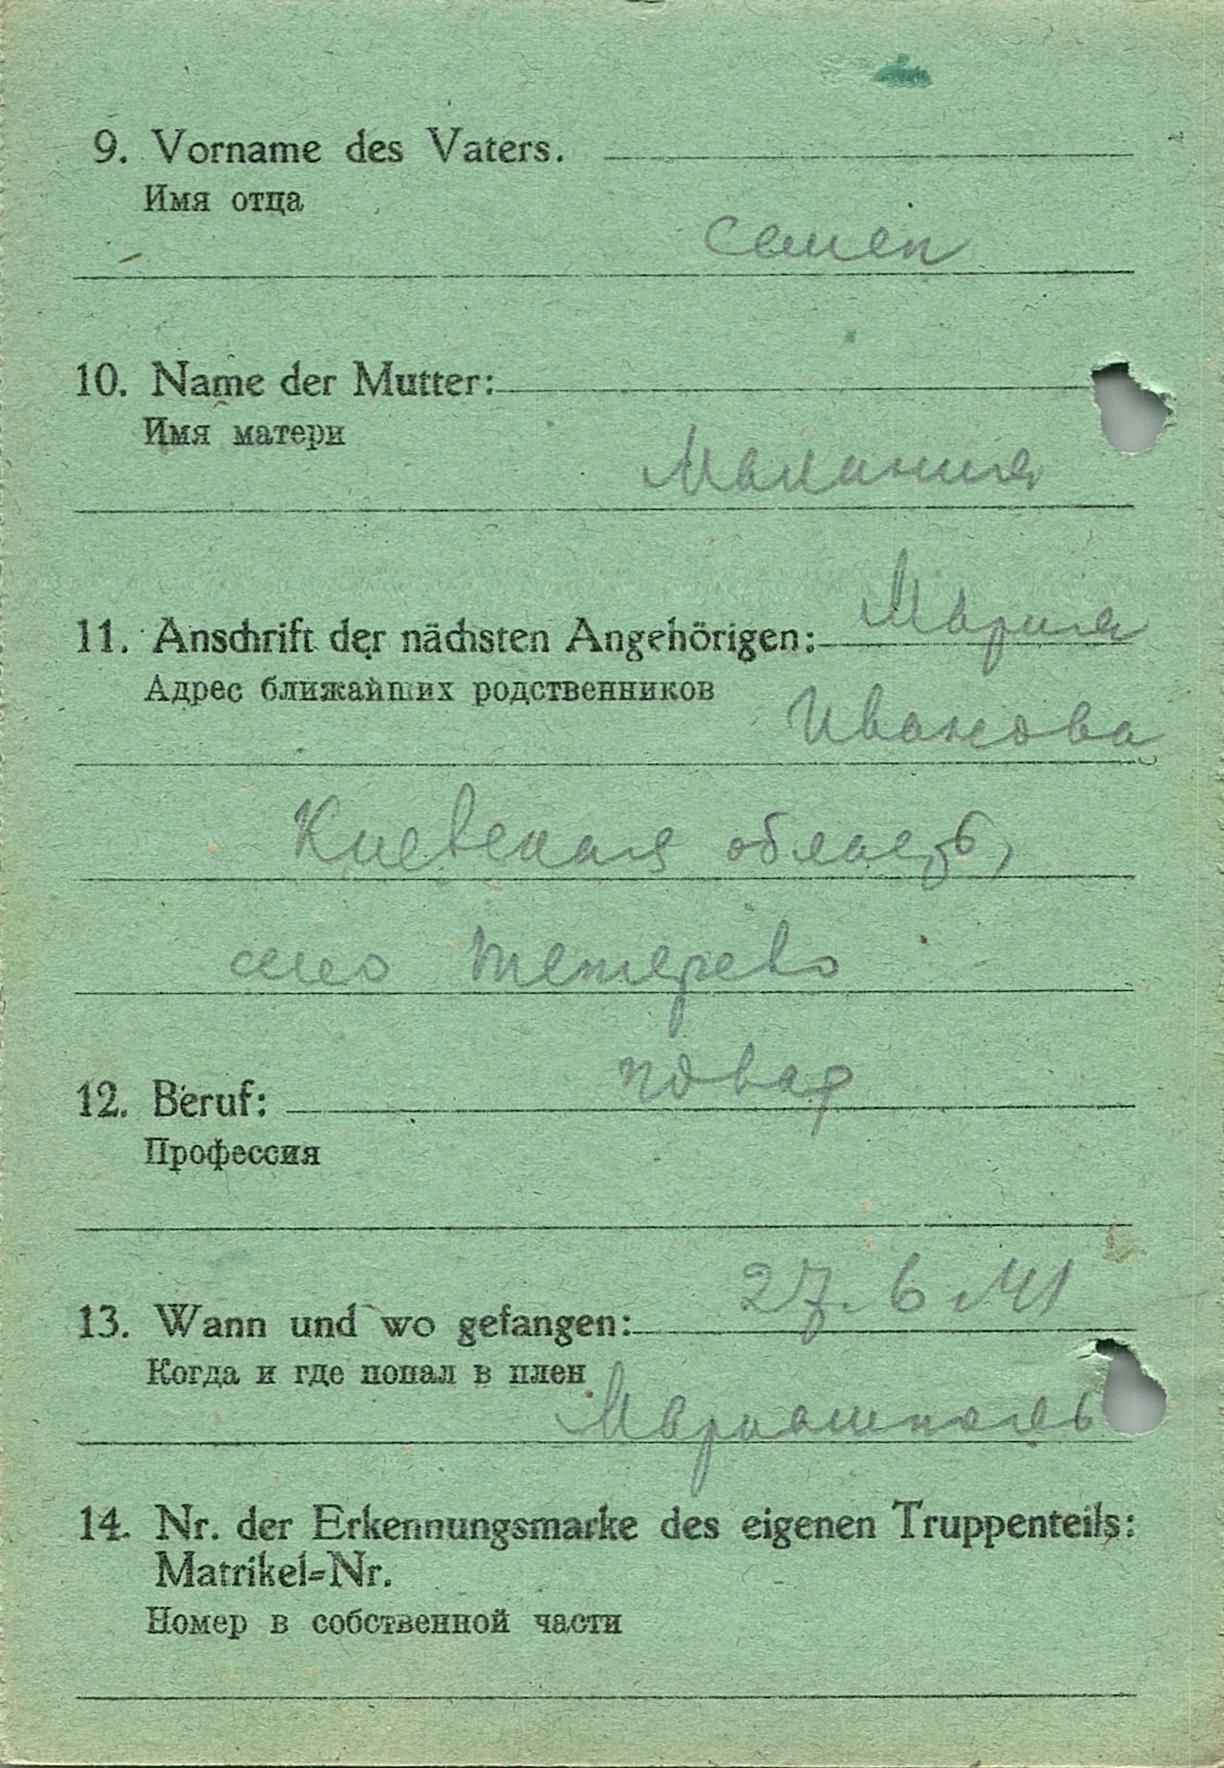 9. Vorname des Vaters.
Имя отца
Семен
10. Name der Mutter:
Имя матери
Малания
11. Anschrift der nächsten Angehörigen: Мария
Адрес ближайших родственников
Иванова
Киевская область,
село Тетерево
12. Beruf: повар
Профессия
13. Wann und wo gefangen: 27.6.41
Когда и где попал в плен
Мариамполь
14. Nr. der Erkennungsmarke des eigenen Truppenteils:
Matrikel=Nr.
Номер в собственной части